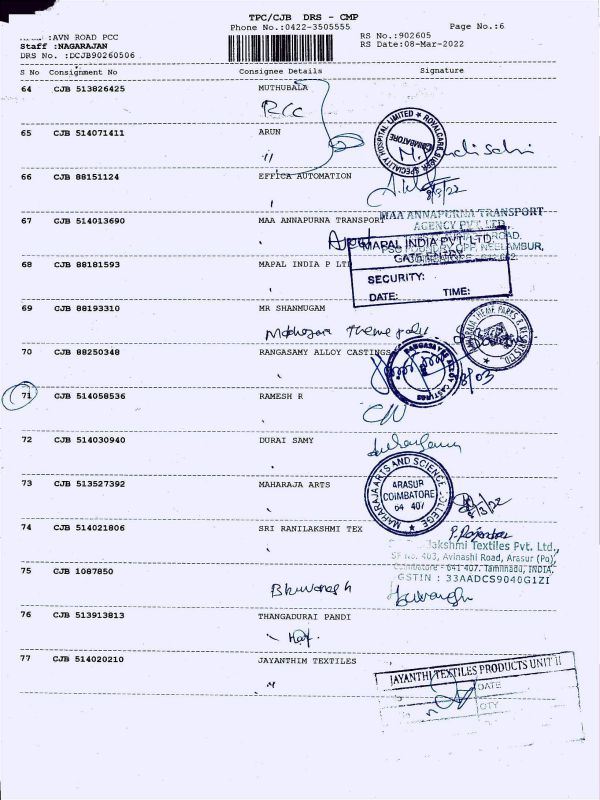 TPC/CJB DRS - CMP
Phone No.:0422-3505555
Page No.:6
:AVN ROAD PCC
RS No.:902605
Staff :NAGARAJAN
RS Date:08-Mar-2022
DRS No. :DCJB90260506
S No Consignment No Consignee Details Signature
64 CJB 513826425 MUTHUBALA
RCC
65 CJB 514071411 ARUN
ROYALCARE SUPER SPECIALITY HOSPITAL LIMITED
COIMBATORE
66 CJB 88151124 EFFICA AUTOMATION
8/3/22
67 CJB 514013690 MAA ANNAPURNA TRANSPORT
MAA ANNAPURNA TRANSPORT
AGENCY PVT. LTD.
ROAD,
NEELAMBUR,
MAPAL INDIA PVT. LTD
GATE ENTRY
68 CJB 88181593 MAPAL INDIA P LTD
SECURITY:
DATE: TIME:
69 CJB 88193310 MR SHANMUGAM
theme
THEME PARKS & RESORTS
70 CJB 88250348 RANGASAMY ALLOY CASTINGS
RANGASAMY ALLOY CASTINGS
71 CJB 514058536 RAMESH R
72 CJB 514030940 DURAI SAMY
73 CJB 513527392 MAHARAJA ARTS
MAHARAJA ARTS AND SCIENCE COLLEGE
ARASUR
COIMBATORE
641 407
8/3/22
74 CJB 514021806 SRI RANILAKSHMI TEX
P. Rajendran
lakshmi Textiles Pvt. Ltd.,
SF No. 403, Avinashi Road, Arasur (Po),
Coimbatore - 641 407. Tamilnadu, INDIA.
GSTIN : 33AADCS9040G1ZI
75 CJB 1087850
Bhuvanesh
76 CJB 513913813 THANGADURAI PANDI
77 CJB 514020210 JAYANTHIM TEXTILES
JAYANTHI TEXTILES PRODUCTS UNIT II
DATE
QTY